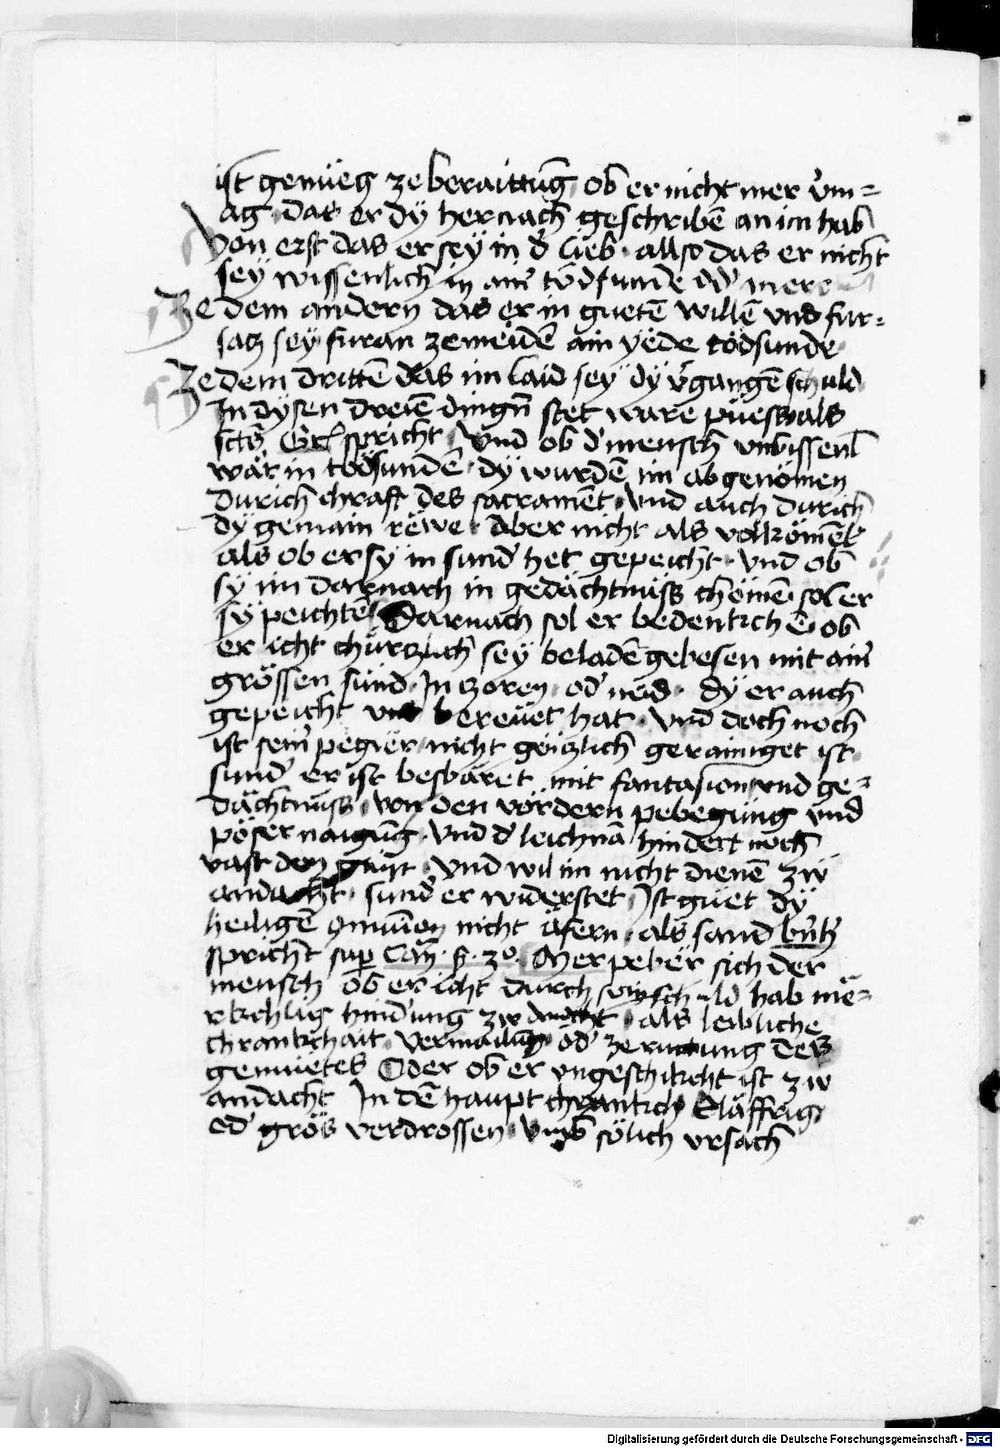 ist genueg ze beraittūg ob er nicht mer v̓m=
ag. das er dÿ hernach geschribē an im hab
Von erst das er seÿ in d̓ lieb. allso das er nicht
seÿ wissenlich in ain̓ tödsunde od̓ mere
Ze dem andern das er in guetē willē vnd fur=
satz seÿ furan ze meidē ain yede tödsunde
Ze dem drittē das im laid seÿ dÿ v̓gangē schuld
In dÿsen dreiē dingn̄ stet ware pues als
spricht. Vnd ob d̓ mensch vnbissenl̄
wär in tödsundē. dÿ wurdē im abgenömen
durich chraft des sacramēt. vnd auch durich
dÿ gemain rewe. Aber nicht als volkömēl̄
als ob er sÿ in sund̓ het gepeicht. Vnd ob
sÿ im darnach in gedächtnüss chömē. sol er
sÿ peichtē Darnach sol er bedenkchē ob
er icht chürczlich seÿ beladē gebesen mit ain̓
grössen sünd. In zoren. od̓ neid. dÿ er auch
gepeicht vnd bereuet hat. vnd doch noch
ist sein̓ pegier nicht gäntzlich gerainiget ist
sund̓ er ist besbäret mit fantasion vnd ge=
dächtnüss. von den vördern pebegüng vnd
pöser naigūg. Vnd d̓ leichnā hindert noch
vast den gaist. Vnd wil im nicht dienē zw
andacht. sund̓ er widerstet. Ist guet dÿ
heiligē 9muniōn nicht äfern. als sand
spricht sup̱ Can̄. Mer peber sich der
mensch ob er icht durch sein schuld hab me=
rkchlig hind̓ung zw andacht. als leibliche
chrankchait. vermailūg od̓ zerutung des
gemüetes Oder ob er vngeschikcht ist zw
andacht In dē haupt chrankch släffrig
od̓ grös verdrossen. Vmb sölich vrsach
Digitalisierung gefördert durch die Deutsche Forschungsgemeinschaft - DFG